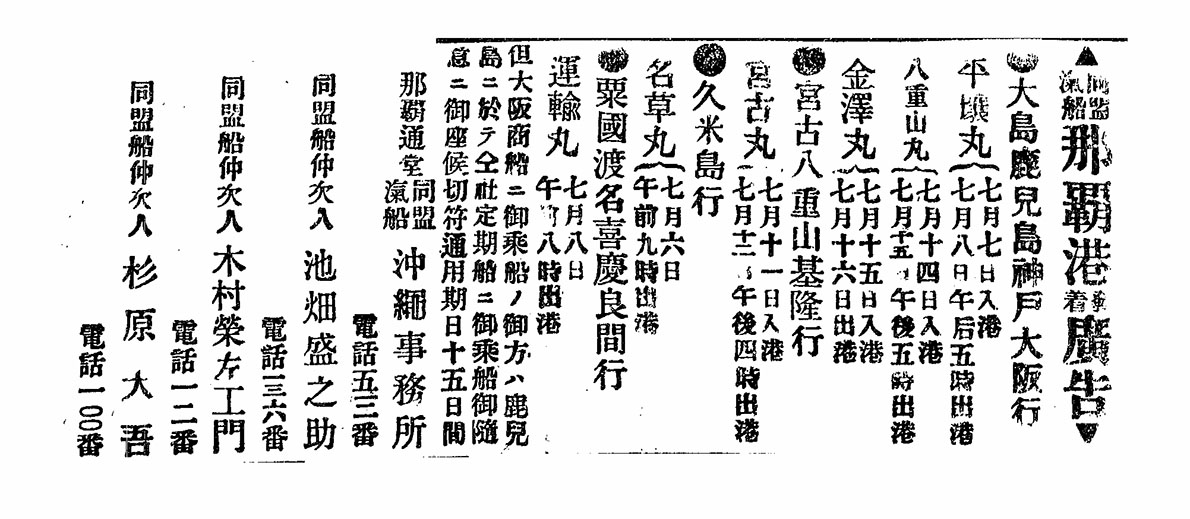 ▲同盟滊船那覇港発着廣告▼
●大島鹿兒島神戸大阪行
平壤丸
七月七日入港
七月八日午后五時出港
八重山丸
七月十四日入港
七月十五日午後五時出港
金澤丸
七月十五日入港
七月十六日出港
●宮古八重山基隆行
宮古丸
七月十一日入港
七月十二日午後四時出港
●久米島行
名草丸
七月六日
午前九時出港
●粟國渡名喜慶良間行
運輸丸
七月八日
午前八時出港
但大阪商船ニ御乘船ノ御方ハ鹿兒
島ニ於テ仝社定期船ニ御乘船御隨
意ニ御座候切符通用期日十五日間
那覇通堂 同盟滊船 沖繩事務所
電話五三番
同盟船仲次人 池畑盛之助
電話一三六番
同盟船仲次人 木村榮左工門
電話一二番
同盟船仲次人 杉原大吾
電話一〇〇番